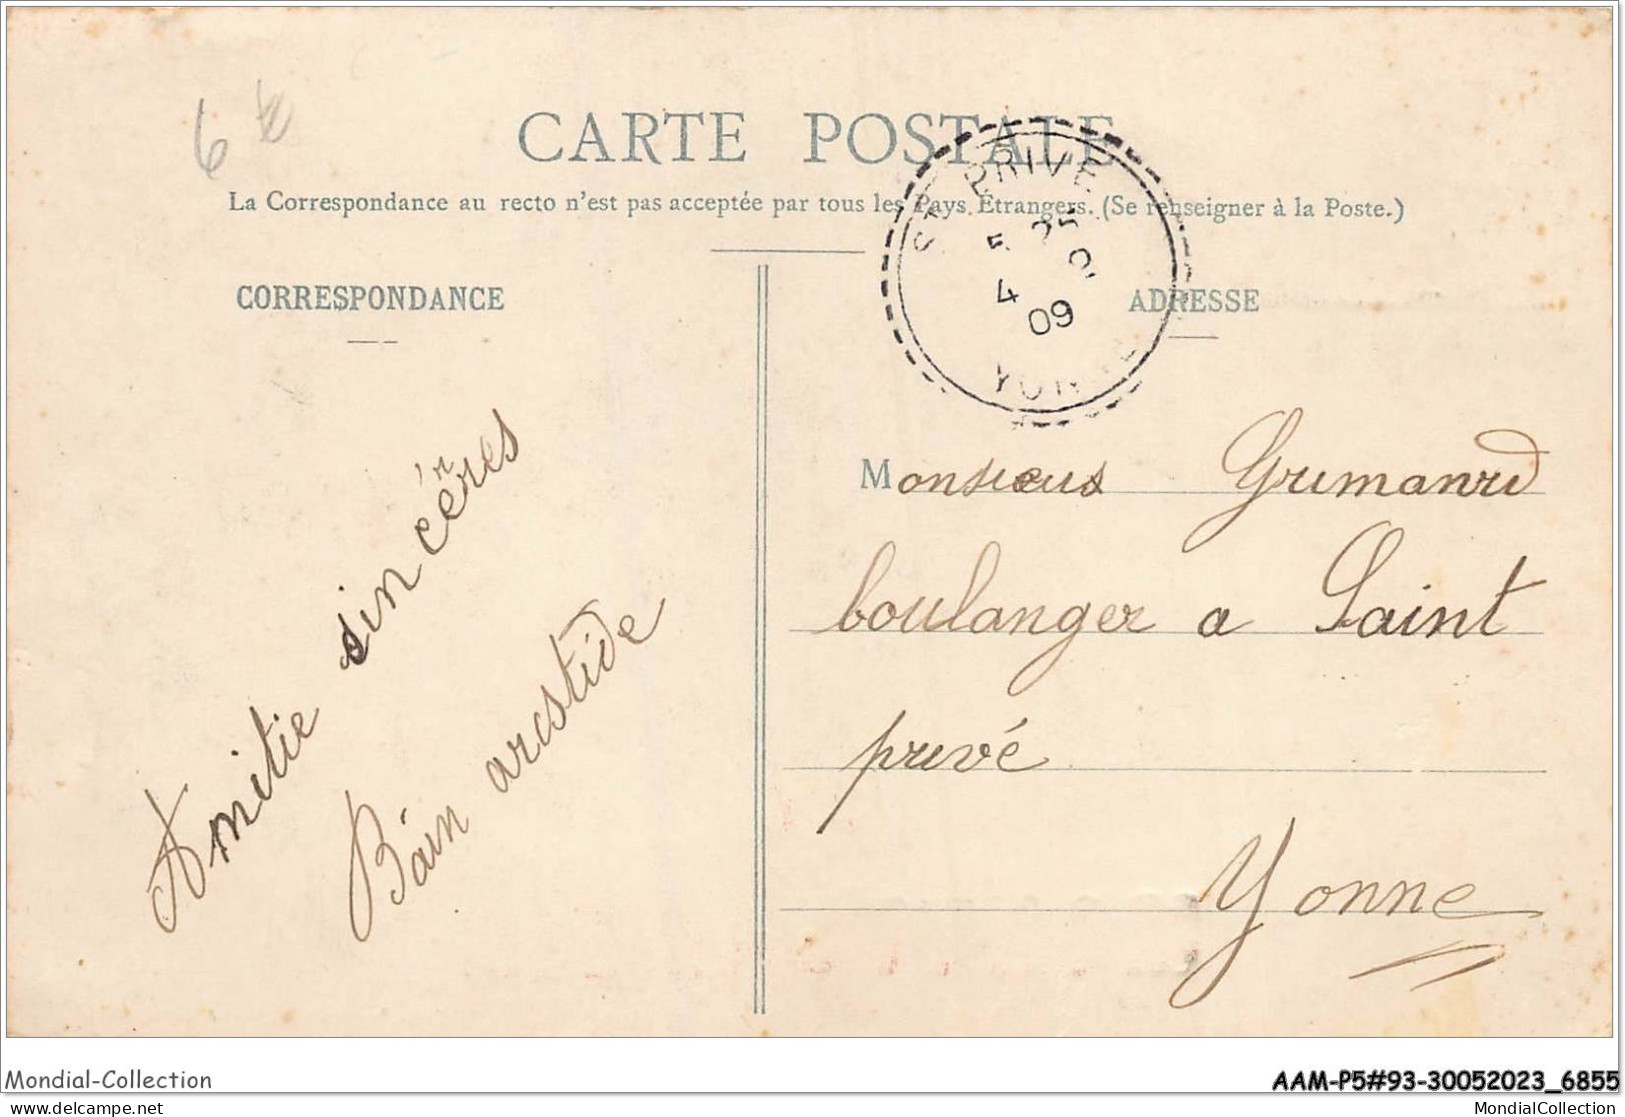 6
CARTE POSTALE
La Correspondance au recto n'est pas acceptée par tous les Pays Etrangers. (Se renseigner à la Poste.)
CORRESPONDANCE
ADRESSE
ST PRIVÉ
25
4
09
YONNE
Amitie sincéres
Bain arcstide
Monsieus Grimanrd
boulanger a Saint
privé
Yonne
Mondial-Collection
AAM-P5#93-30052023_6855
delcampe.net
MondialCollection